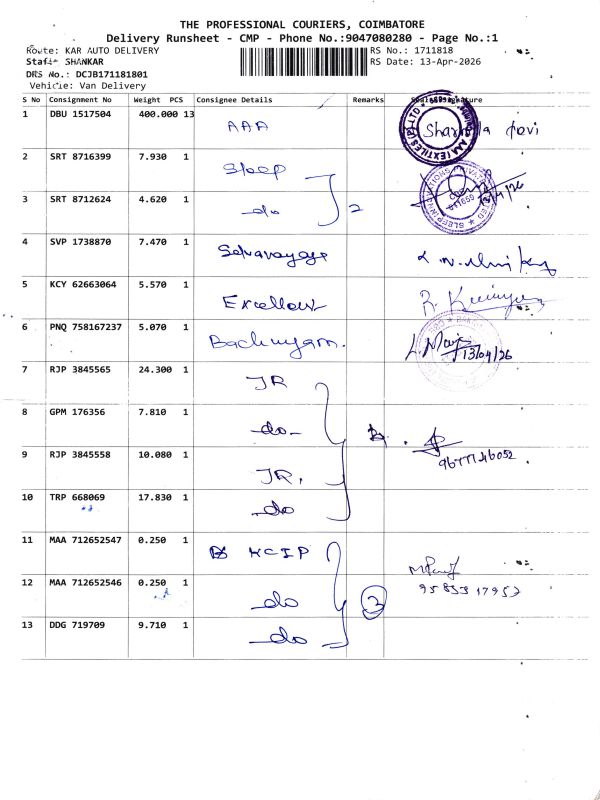 THE PROFESSIONAL COURIERS, COIMBATORE
Delivery Runsheet - CMP - Phone No.:9047080280 - Page No.:1
Route: KAR AUTO DELIVERY
RS No.: 1711818
Staff: SHANKAR
RS Date: 13-Apr-2026
DRS No.: DCJB171181801
Vehicle: Van Delivery
S No Consignment No Weight PCS Consignee Details Remarks
1 DBU 1517504 400.000 13 AAA
2 SRT 8716399 7.930 1 Sleep
3 SRT 8712624 4.620 1 do 2
4 SVP 1738870 7.470 1
5 KCY 62663064 5.570 1
6 PNQ 758167237 5.070 1 13/04/26
7 RJP 3845565 24.300 1 JR
8 GPM 176356 7.810 1 do
9 RJP 3845558 10.080 1 JR.
10 TRP 668069 17.830 1 do
11 MAA 712652547 0.250 1 KCIP
12 MAA 712652546 0.250 1 do 3
13 DDG 719709 9.710 1 do